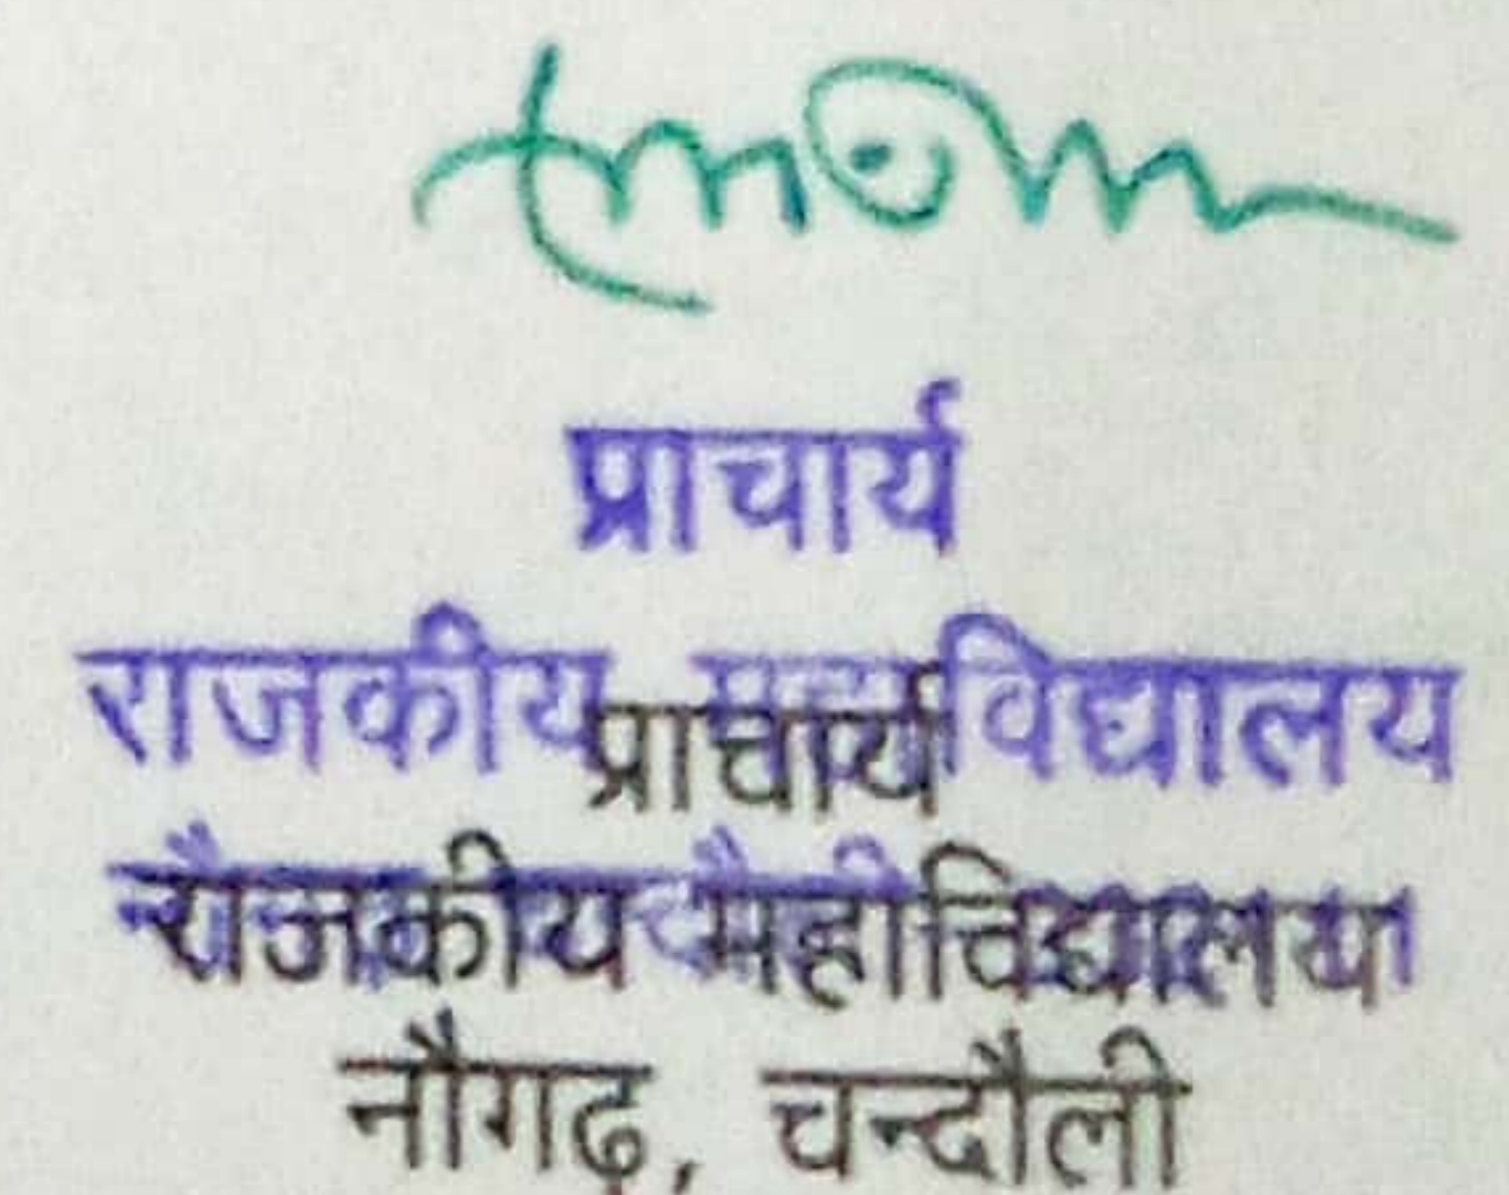 प्राचार्य
राजकीय महाविद्यालय
प्राचार्य
राजकीय महाविद्यालय
नौगढ़, चन्दौली